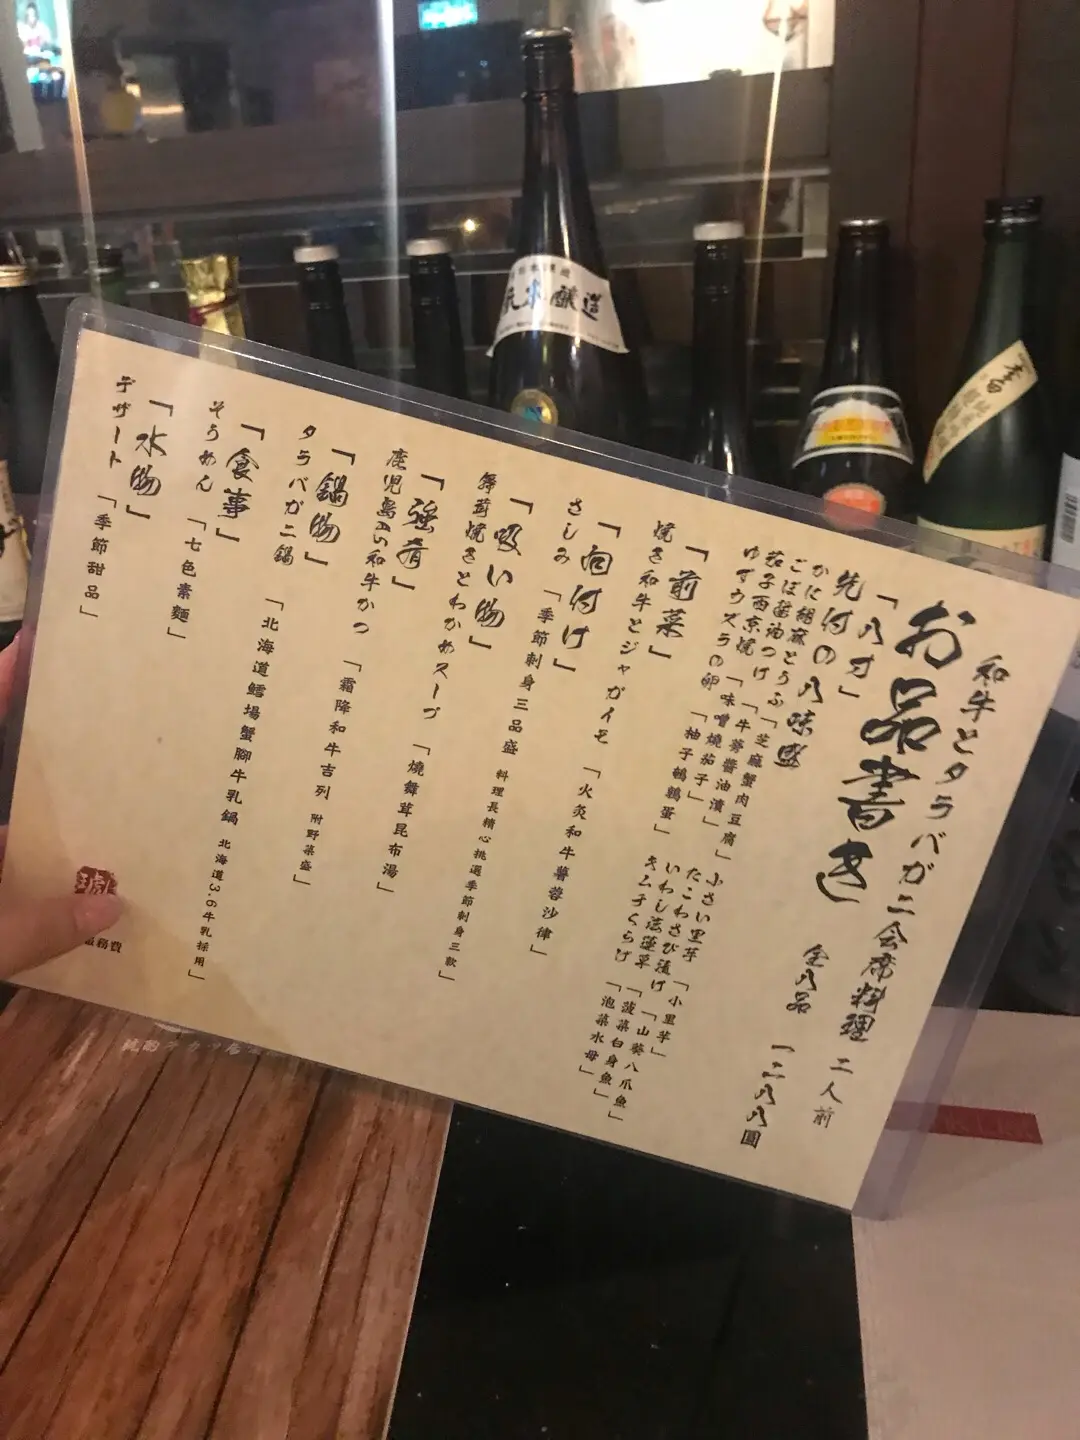 和牛とタラバガニ会席料理 二人前
お品書き
全八品 一二八八圓
「八寸」
先付の八味盛
かに胡麻とうふ「芝麻蟹肉豆腐」
ごぼ醤油つけ「牛蒡醬油漬」
茄子西京焼「味噌燒茄子」
ゆずウズラの卵「柚子鵪鶉蛋」
小さい里芋「小里芋」
たこわさび漬け「山葵八爪魚」
いわし法蓮草「菠菜白身魚」
キムチくらげ「泡菜水母」
「前菜」
焼き和牛とジャガイモ「火灸和牛薯蓉沙律」
「向付け」
さしみ「季節刺身三品盛 料理長精心挑選季節刺身三款」
「吸い物」
舞茸焼きとわかめスープ「燒舞茸昆布湯」
「強肴」
鹿児島A5和牛かつ「霜降和牛吉列 附野菜盛」
「鍋物」
タラバガニ鍋「北海道鱈場蟹腳牛乳鍋 北海道3.6牛乳採用」
「食事」
そうめん「七色素麵」
「水物」
デザート「季節甜品」
服務費